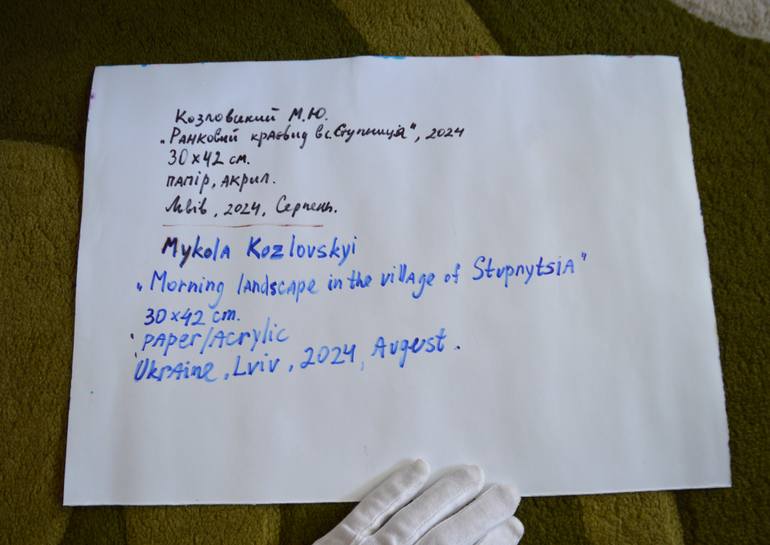 Козловський М.Ю.
„Ранковий краєвид в с. Ступниця", 2024
30×42 см.
папір, акрил.
Львів, 2024, Серпень.
Mykola Kozlovskyi
„Morning landscape in the village of Stupnytsia"
30×42 cm.
PAper/Acrylic
UkrAine, Lviv, 2024, August.